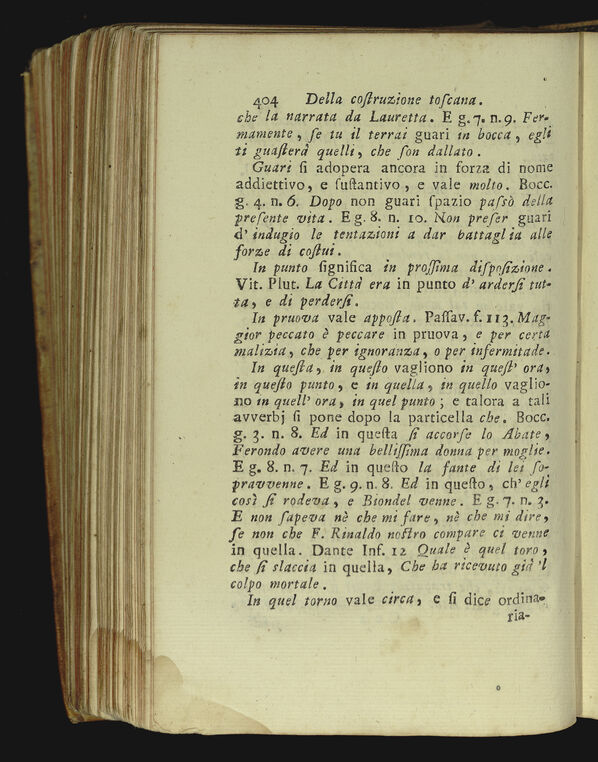 404 Della coſtruzione toſcana.
che la narrata da Lauretta. E g. 7. n. 9. Fer-
mamente, ſe tu il terrai guari in bocca, egli
ti guaſterà quelli, che ſon dallato.
Guari ſi adopera ancora in forza di nome
addiettivo, e ſuſtantivo, e vale molto. Bocc.
g. 4. n. 6. Dopo non guari ſpazio paſsò della
preſente vita. E g. 8. n. 10. Non preſer guari
d' indugio le tentazioni a dar battaglia alle
forze di coſtui.
In punto ſignifica in proſſima diſpoſizione.
Vit. Plut. La Città era in punto d' arderſi tut-
ta, e di perderſi.
In pruova vale appoſta. Paſſav. f. 113. Mag-
gior peccato è peccare in pruova, e per certa
malizia, che per ignoranza, o per infermitade.
In queſta, in queſto vagliono in queſt' ora,
in queſto punto, e in quella, in quello vaglio-
no in quell' ora, in quel punto; e talora a tali
avverbj ſi pone dopo la particella che. Bocc.
g. 3. n. 8. Ed in queſta ſi accorſe lo Abate,
Ferondo avere una belliſſima donna per moglie.
E g. 8. n. 7. Ed in queſto la fante di lei ſo-
pravvenne. E g. 9. n. 8. Ed in queſto, ch' egli
così ſi rodeva, e Biondel venne. E g. 7. n. 3.
E non ſapeva nè che mi fare, nè che mi dire,
ſe non che F. Rinaldo noſtro compare ci venne
in quella. Dante Inf. 12 Quale è quel toro,
che ſi slaccia in quella, Che ha ricevuto già 'l
colpo mortale.
In quel torno vale circa, e ſi dice ordina-
ria-